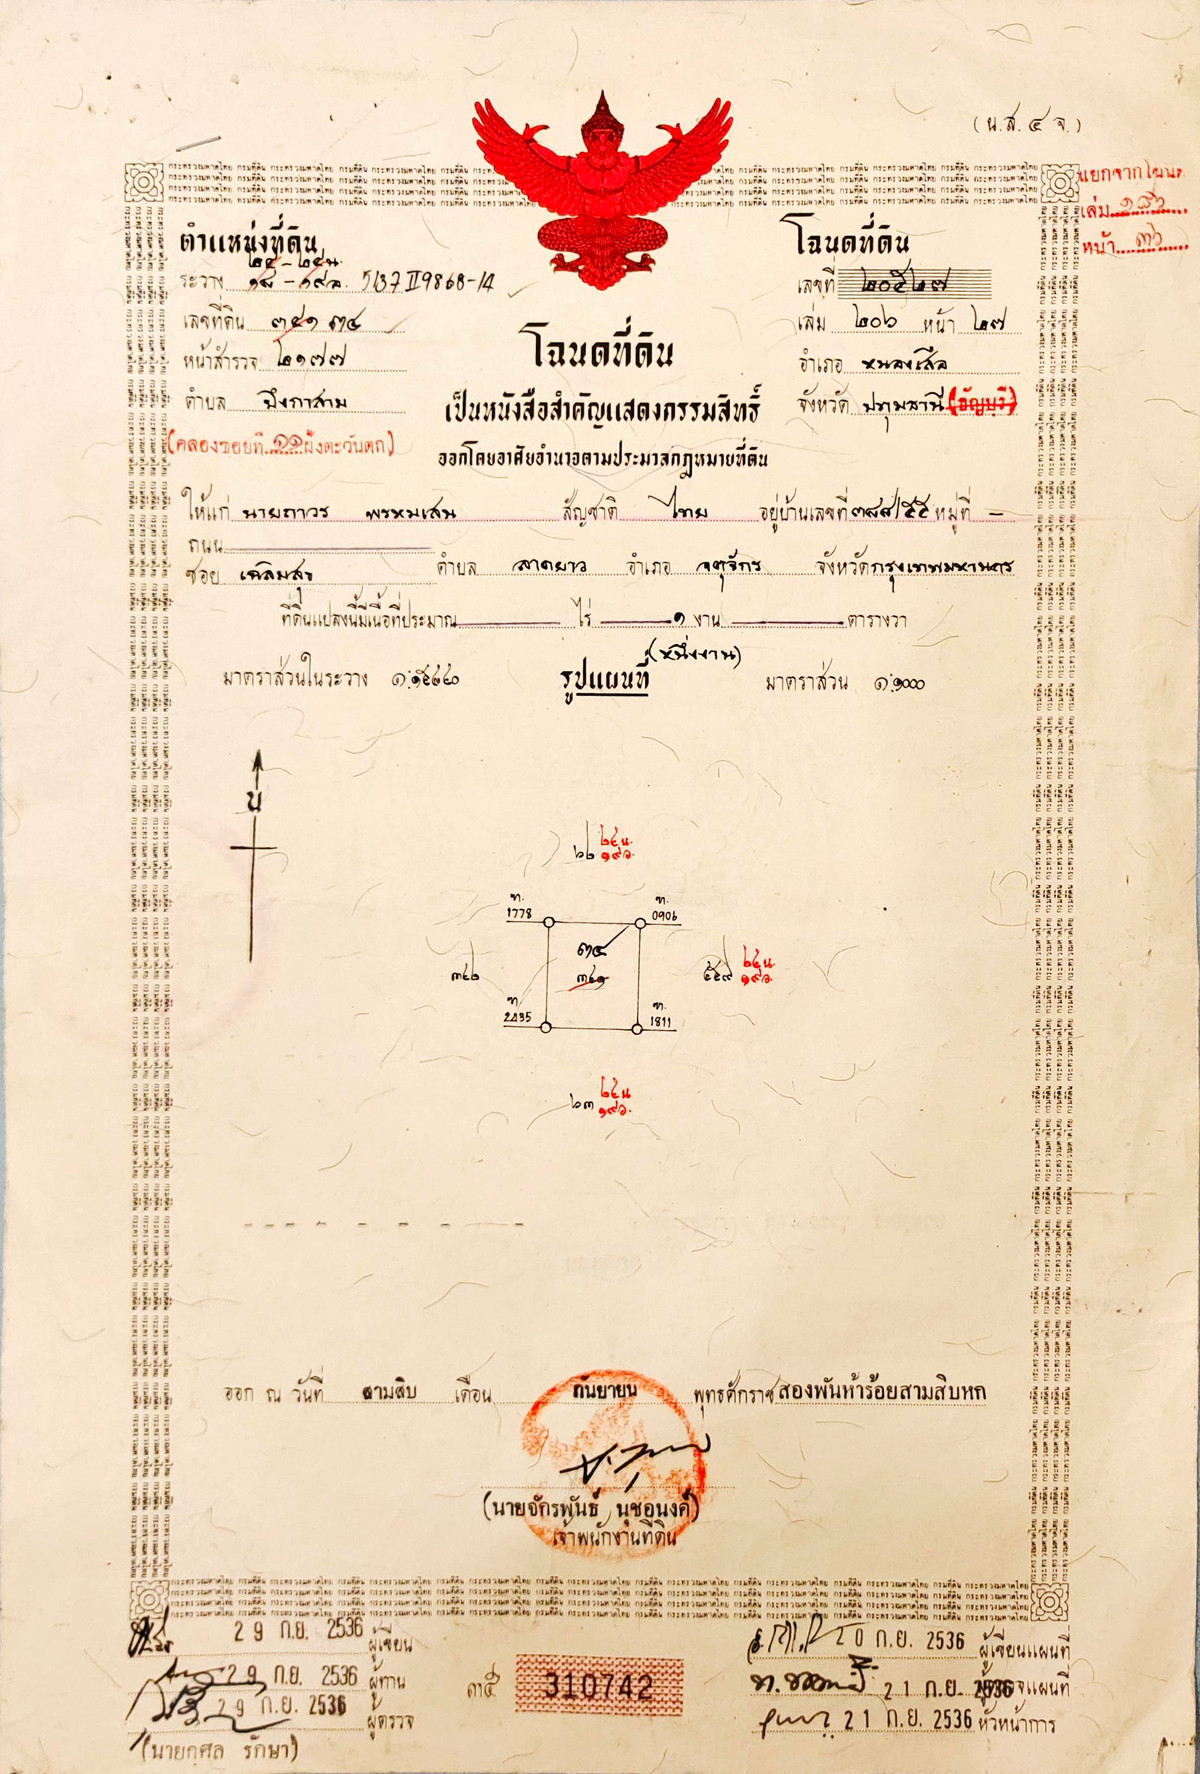 (น.ส. ๔ จ.)
แยกจากโฉนด
เล่ม ๑๘๖
หน้า ๓๖
ตำแหน่งที่ดิน
๒๔-๒๔น.
ระวาง ๑๘-๑๙อ. 5137 II 9868-14
เลขที่ดิน ๓๔๑ ๓๔
หน้าสำรวจ ๒๑๗๗
ตำบล บึงกาสาม
(คลองซอยที่ ๑๑ ฝั่งตะวันตก)
โฉนดที่ดิน
เลขที่ ๒๐๕๒๗
เล่ม ๒๐๖ หน้า ๒๗
อำเภอ หนองเสือ
จังหวัด ปทุมธานี (ธัญบุรี)
โฉนดที่ดิน
เป็นหนังสือสำคัญแสดงกรรมสิทธิ์
ออกโดยอาศัยอำนาจตามประมวลกฎหมายที่ดิน
ให้แก่ นายถาวร พรหมเสน สัญชาติ ไทย อยู่บ้านเลขที่ ๓๘๘/๕๕ หมู่ที่ -
ถนน
ซอย เฉลิมสุข ตำบล ลาดยาว อำเภอ จตุจักร จังหวัด กรุงเทพมหานคร
ที่ดินแปลงนี้มีเนื้อที่ประมาณ ไร่ ๑ งาน ตารางวา
(หนึ่งงาน)
มาตราส่วนในระวาง ๑:๑๕๔๔๐ รูปแผนที่ มาตราส่วน ๑:๑๐๐๐
น
๖๒ ๒๔น.
๑๙อ.
ฑ. 1778
ฑ. 0906
๓๔
๓๔๑
๓๔๒
๕๕๙ ๒๔น.
๑๙อ.
ฑ. 2435
ฑ. 1811
๖๓ ๒๔น
๑๙อ.
ออก ณ วันที่ สามสิบ เดือน กันยายน พุทธศักราช สองพันห้าร้อยสามสิบหก
(นายจักรพันธ์ นุชอนงค์)
เจ้าพนักงานที่ดิน
29 ก.ย. 2536 ผู้เขียน
29 ก.ย. 2536 ผู้ทาน
29 ก.ย. 2536 ผู้ตรวจ
(นายกุศล รักษา)
๓๕ 310742
20 ก.ย. 2536 ผู้เขียนแผนที่
21 ก.ย. 2536 ผู้ตรวจแผนที่
21 ก.ย. 2536 หัวหน้าการ